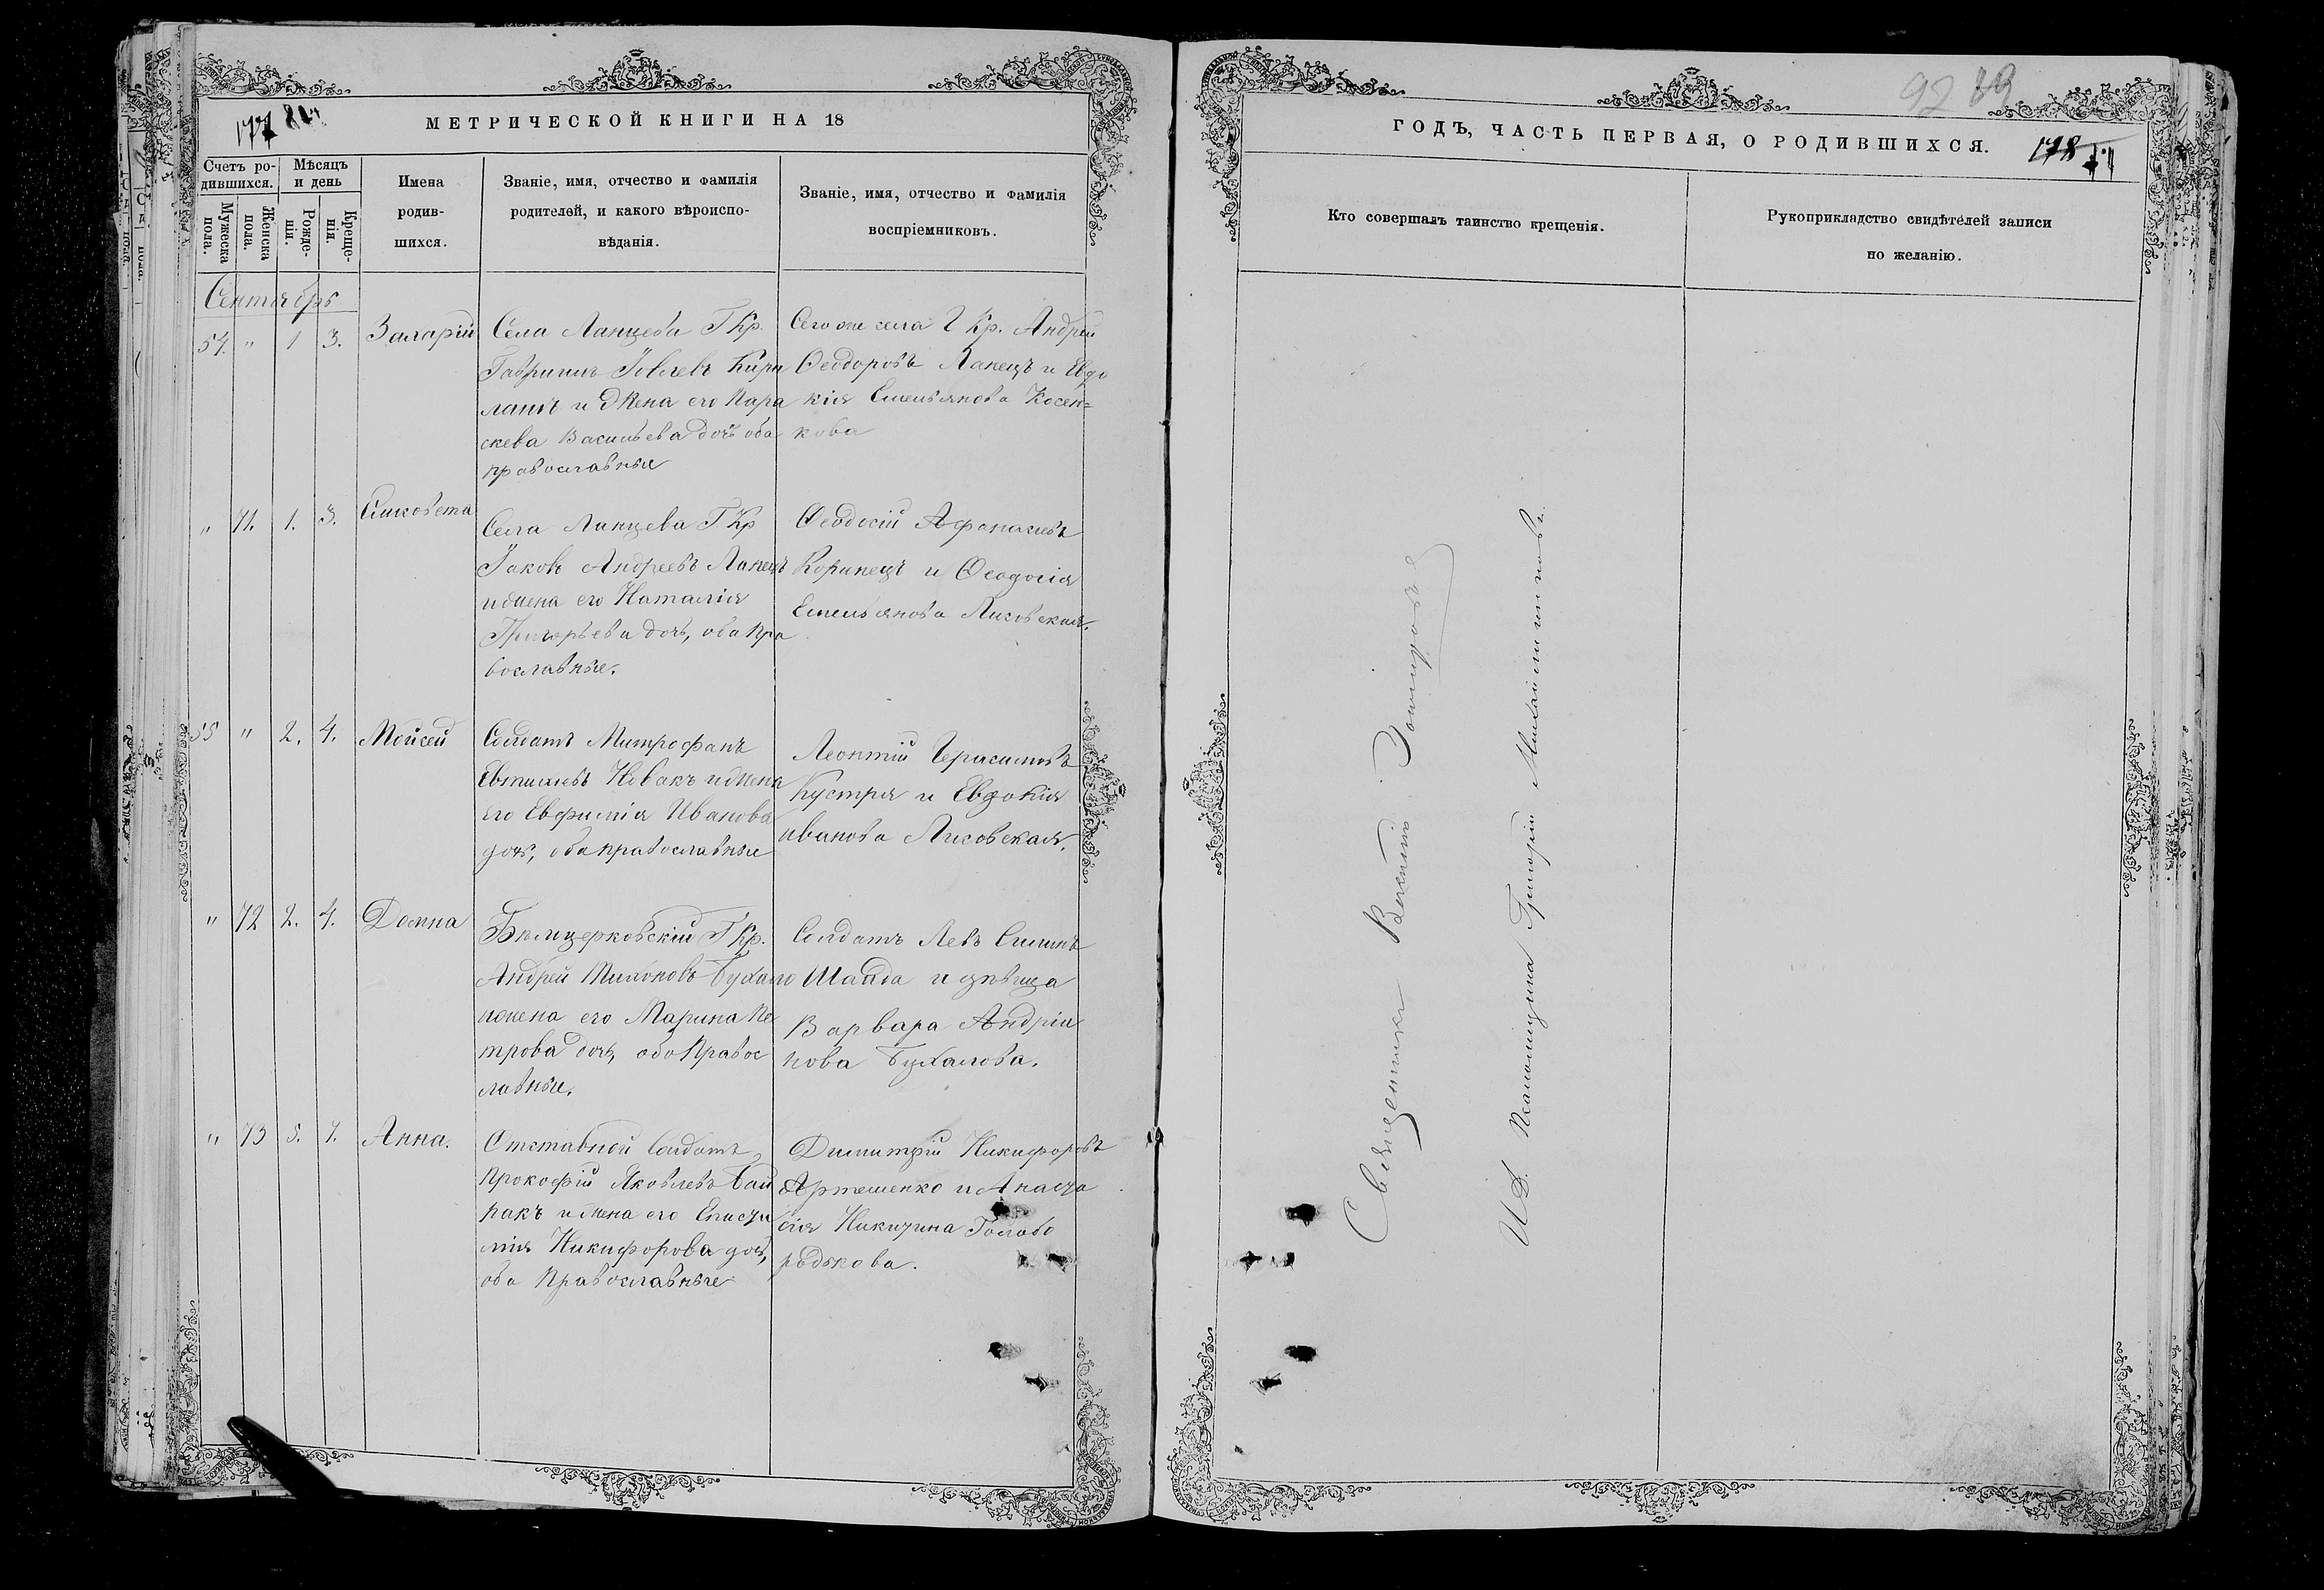 177
МЕТРИЧЕСКОЙ КНИГИ НА 18
Счетъ ро-
дившихся.
Мѣсяцъ
и день
Мужеска
пола.
Женска
пола.
Рожде-
нія.
Креще-
нія.
Имена
родив-
шихся.
Званіе, имя, отчество и фамилія
родителей, и какого вѣроиспо-
вѣданія.
Званіе, имя, отчество и фамилія
воспріемниковъ.
Сентябрь
54. " 1 3.
Села Ланцева Г Кр.
и Жена его Пара
скева Васильева дочь оба
православные
Сего же села Г Кр. Андрей
Ѳеодоровъ Лапецъ и Евдо
кія Емельянова Косен=
кова
" 71. 1. 3. Елисовета
Села Ланцева Г Кр
Іаковъ Андреевъ Лапецъ
и жена его Наталія
Григорьева дочь, оба Пра
вославные.
Ѳеодосій Афонасіевъ
Коринецъ и Ѳеодосія
Емельянова Лисовская.
55 " 2. 4. Мойсей
Солдатъ Митрофанъ
Новакъ и жена
его Евфимія Иванова
дочь, оба православные
Леонтій Герасимовъ
Кустря и Евдокія
иванова Лисовская.
" 72 2. 4. Домна
Бѣлицерковскій Г Кр.
Андрей Тихоновъ Бухало
и жена его Марина Пе
трова дочь, обо Правос
лавные.
Солдатъ Левъ
и дѣвица
Варвара Андріа
нова Бухалова.
" 73 5. 7. Анна.
Отставной Солдатъ
Прокофій Яковлевъ Бай
ракъ и жена его
Никифорова дочь,
оба Православные
Димитрій Никифоровъ
Артешенко и Анаста
сія Никитина Голобо
рѣдькова.
92 89
ГОДЪ, ЧАСТЬ ПЕРВАЯ, О РОДИВШИХСЯ.
178
Кто совершалъ таинство крещенія.
Рукоприкладство свидѣтелей записи
по желанію.
Священникъ Василій
И. Д. Псаломщика Григорій